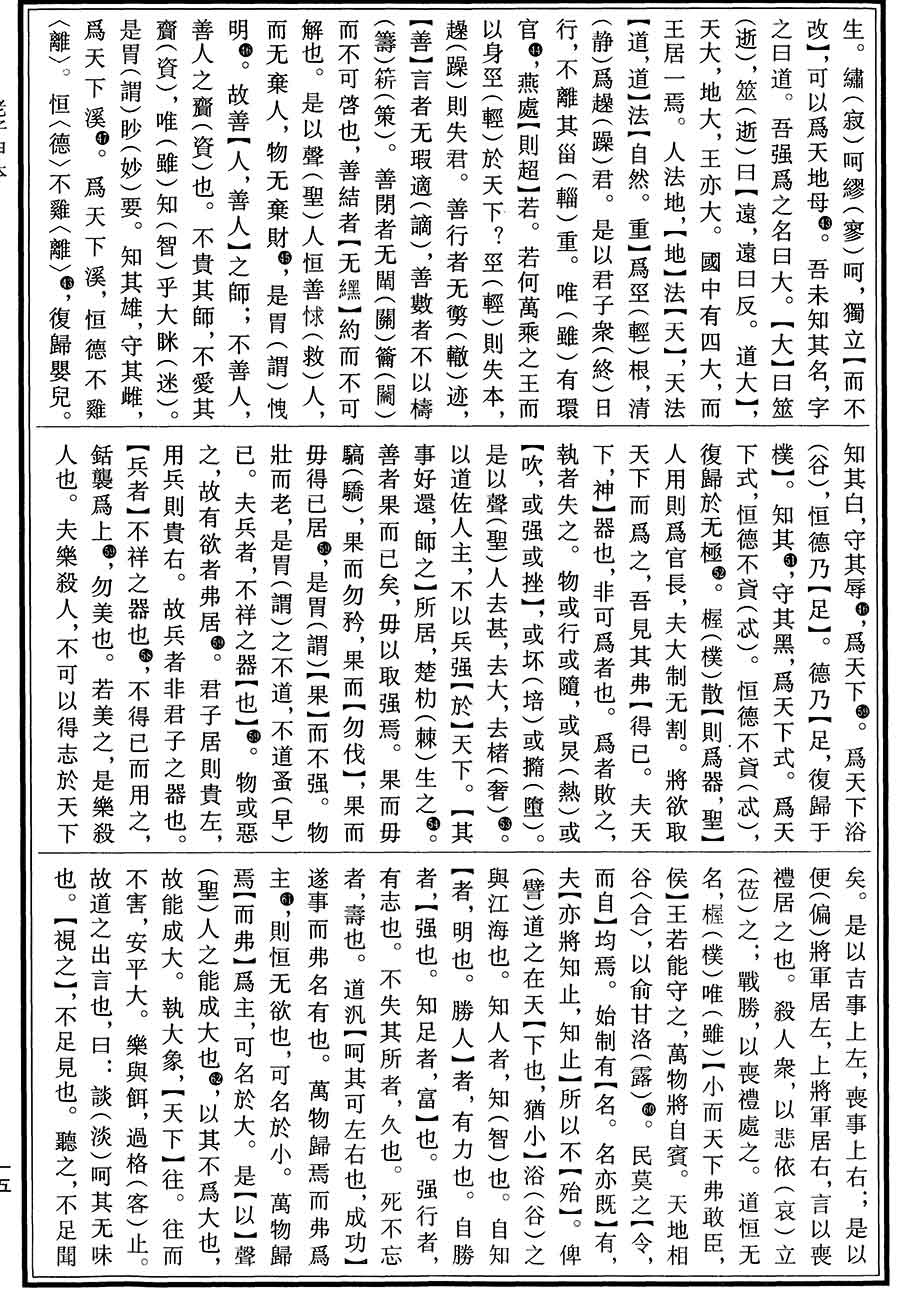 生。繡(寂)呵繆(寥)呵,獨立【而不
改】,可以爲天地母㊸。吾未知其名,字
之曰道。吾强爲之名曰大。【大】曰筮
(逝),筮(逝)曰【遠,遠曰反。道大】,
天大,地大,王亦大。國中有四大,而
王居一焉。人法地,【地】法【天】,天法
【道,道】法【自然。重】爲巠(輕)根,清
(静)爲趮(躁)君。是以君子衆(終)日
行,不離其甾(輜)重。唯(雖)有環
官㊹,燕處【則超】若。若何萬乘之王而
以身巠(輕)於天下?巠(輕)則失本,
趮(躁)則失君。善行者无勶(轍)迹,
【善】言者无瑕適(謫),善數者不以檮
(籌)𥮊(策)。善閉者无䦘(關)籥(闔)
而不可啓也,善結者【无纆】約而不可
解也。是以聲(聖)人恒善㤹(救)人,
而无棄人,物无棄財㊺,是胃(謂)㥀
明㊻。故善【人,善人】之師;不善人,
善人之齎(資)也。不貴其師,不愛其
齎(資),唯(雖)知(智)乎大眯(迷)。
是胃(謂)眇(妙)要。知其雄,守其雌,
爲天下溪㊼。爲天下溪,恒德不雞
〈離〉。恒〈德〉不雞〈離〉㊸,復歸嬰兒。
知其白,守其辱㊻,爲天下㊿。爲天下浴
(谷),恒德乃【足】。德乃【足,復歸于
樸】。知其,守其黑,爲天下式。爲天
下式,恒德不貣(忒)。恒德不貣(忒),
復歸於无極。楃(樸)散【則爲器,聖】
人用則爲官長,夫大制无割。將欲取
天下而爲之,吾見其弗【得已。夫天
下,神】器也,非可爲者也。爲者敗之,
執者失之。物或行或隨,或炅(熱)或
【吹,或强或挫】,或坏(培)或撱(墮)。
是以聲(聖)人去甚,去大,去楮(奢)。
以道佐人主,不以兵强【於】天下。【其
事好還,師之】所居,楚朸(棘)生之。
善者果而已矣,毋以取强焉。果而毋
驕(驕),果而勿矜,果而【勿伐】,果而
毋得已居,是胃(謂)【果】而不强。物
壯而老,是胃(謂)之不道,不道蚤(早)
已。夫兵者,不祥之器【也】。物或惡
之,故有欲者弗居。君子居則貴左,
用兵則貴右。故兵者非君子之器也。
【兵者】不祥之器也,不得已而用之,
銛襲爲上,勿美也。若美之,是樂殺
人也。夫樂殺人,不可以得志於天下
矣。是以吉事上左,喪事上右;是以
便(偏)將軍居左,上將軍居右,言以喪
禮居之也。殺人衆,以悲依(哀)立
(莅)之;戰勝,以喪禮處之。道恒无
名,楃(樸)唯(雖)【小而天下弗敢臣,
侯】王若能守之,萬物將自賓。天地相
谷〈合〉,以俞甘洛(露)。民莫之【令,
而自】均焉。始制有【名。名亦既】有,
夫【亦將知止,知止】所以不【殆】。俾
(譬)道之在天【下也,猶小】浴(谷)之
與江海也。知人者,知(智)也。自知
【者,明也。勝人】者,有力也。自勝
者,【强也。知足者,富】也。强行者,
有志也。不失其所者,久也。死不忘
者,壽也。道汎【呵其可左右也,成功】
遂事而弗名有也。萬物歸焉而弗爲
主,則恒无欲也,可名於小。萬物歸
焉【而弗】爲主,可名於大。是【以】聲
(聖)人之能成大也,以其不爲大也,
故能成大。執大象,【天下】往。往而
不害,安平大。樂與餌,過格(客)止。
故道之出言也,曰:談(淡)呵其无味
也。【視之】,不足見也。聽之,不足聞